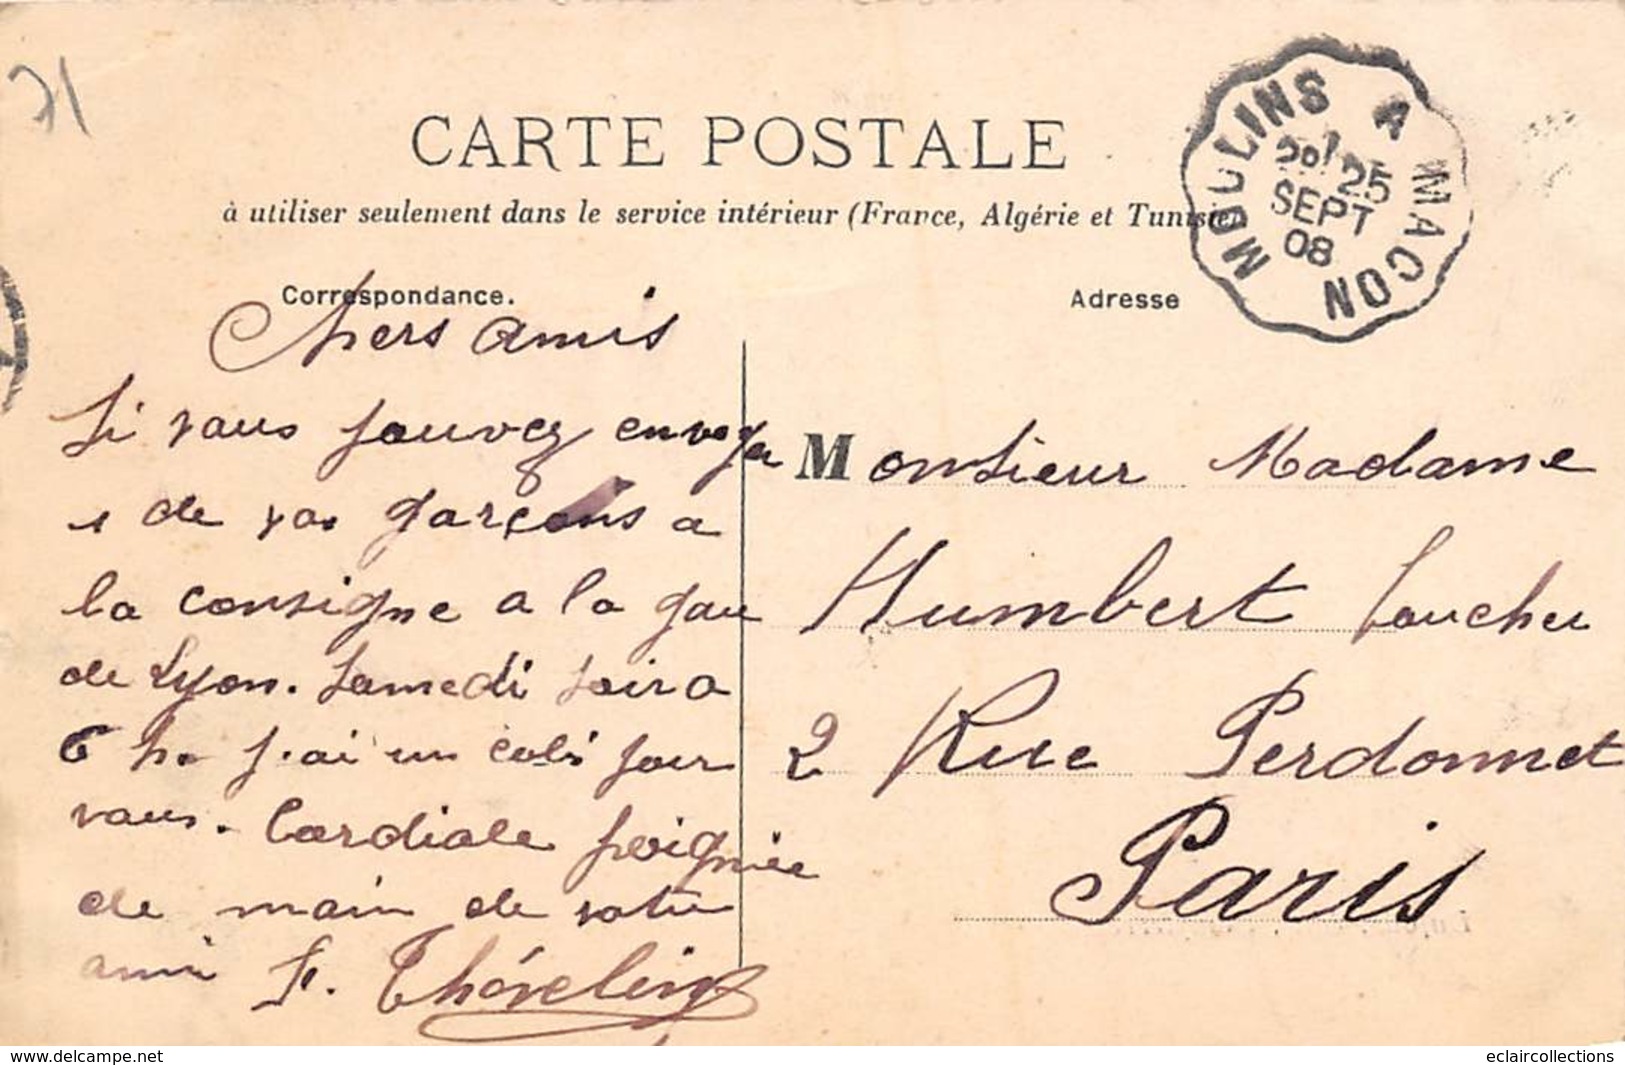 71
CARTE POSTALE
à utiliser seulement dans le service intérieur (France, Algérie et Tunisie)
MOULINS A MACON
25
SEPT
08
Correspondance.
Adresse
Chers amis
Si vous pouvez envoyer
1 de vos garçons a
la consigne a la gare
de Lyon. Samedi soir a
6 h. j'ai un colis pour
vous. Cordiale poignée
de main de votre
ami F. Thévelin
Monsieur Madame
Humbert
2 Rue Perdonnet
Paris
www.delcampe.net
eclaircollections